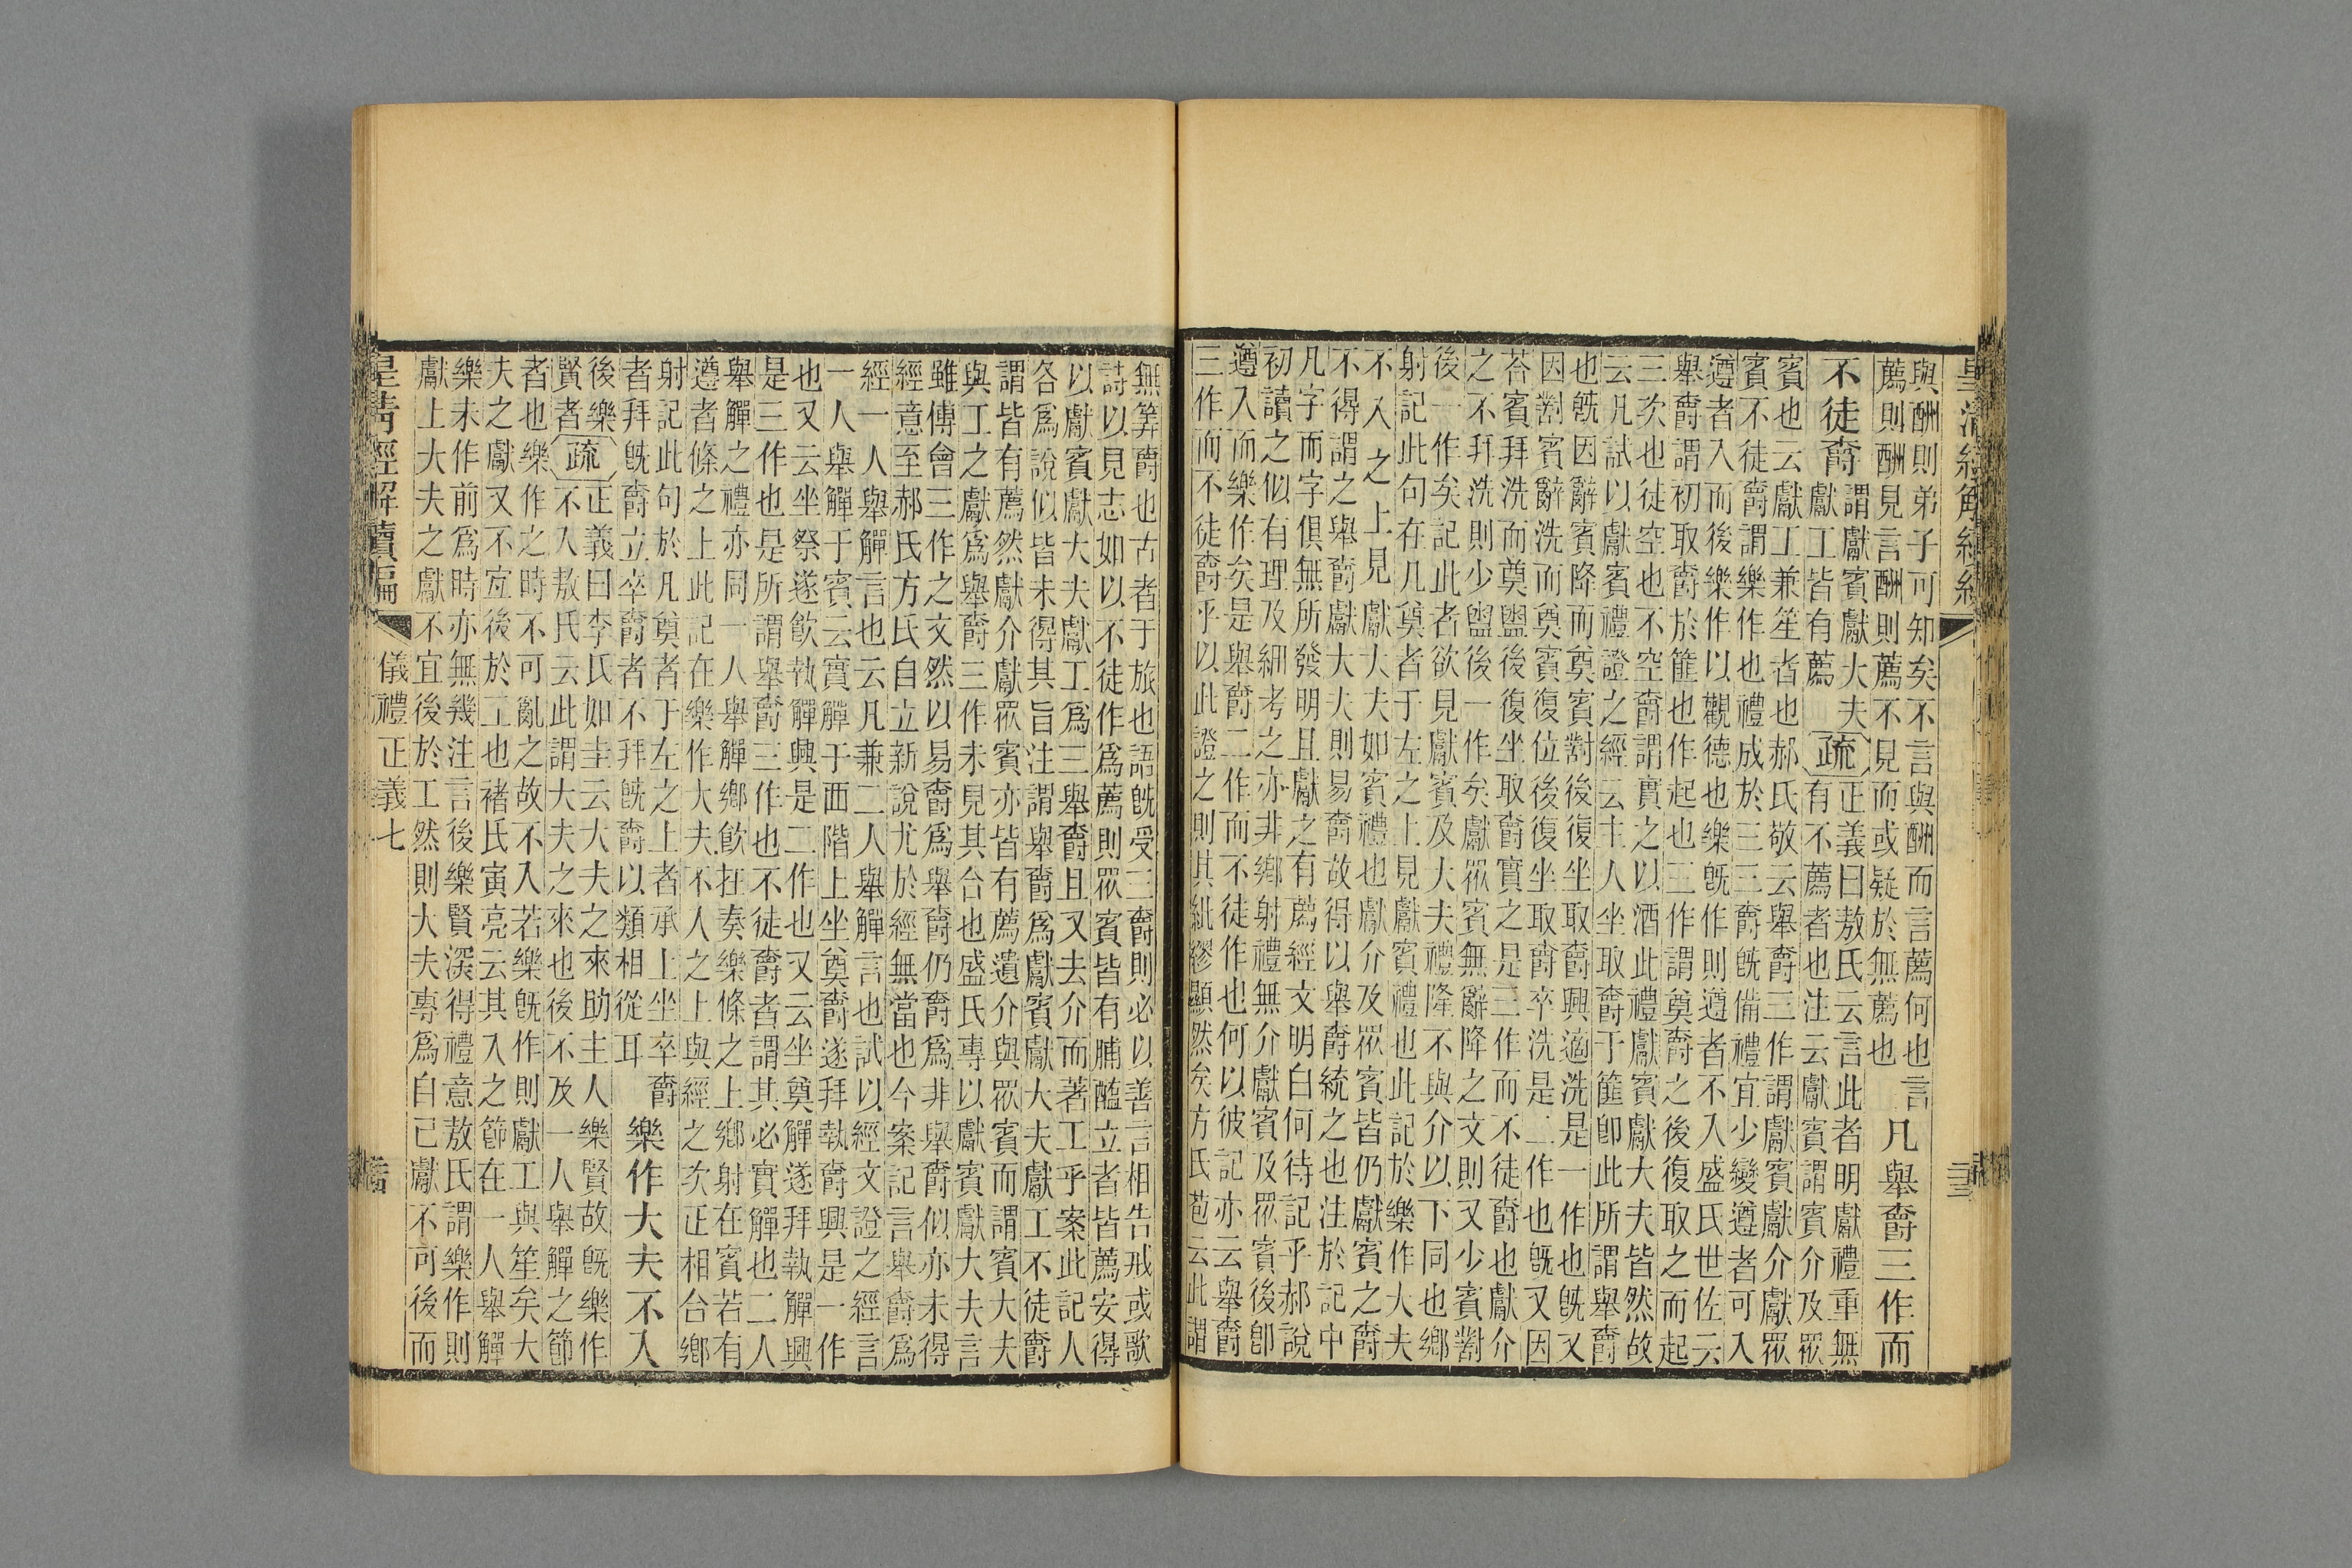 與酬則弟子可知矣不言與酬而言薦何也言
薦則酬見言酬則薦不見而或疑於無薦也
凡舉爵三作而
不徒爵
謂獻賓獻大夫
獻工皆有薦
疏
正義曰敖氏云言此者明獻禮重無
有不薦者也注云獻賓謂賓介及眾
賓也云獻工兼笙者也郝氏敬云舉爵三作謂獻賓獻介獻眾
賓不徒爵謂樂作也禮成於三三爵旣備禮宜少變遵者可入
遵者入而後樂作以觀德也樂旣作則遵者不入盛氏世佐云
舉爵謂初取爵於篚也作起也三作謂奠爵之後復取之而起
三次也徒空也不空爵謂實之以酒此禮獻賓獻大夫皆然故
云凡試以獻賓禮證之經云主人坐取爵于篚卽此所謂舉爵
也旣因辭賓降而奠賓對後復坐取爵興適洗是一作也旣又
因對賓辭洗而奠賓復位後復坐取爵卒洗是二作也旣又因
荅賓拜洗而奠盥後復坐取爵實之是三作而不徒爵也獻介
之不拜洗則少盥後一作矣獻眾賓無辭降之文則又少賓對
後一作矣記此者欲見獻賓及大夫禮隆不與介以下同也鄉
射記此句在凡奠者于左之上見獻賓禮也此記於樂作大夫
不入之上見獻大夫如賓禮也獻介及眾賓皆仍獻賓之爵
不得謂之舉爵獻大夫則易爵故得以舉爵統之也注於記中
凡字而字俱無所發明且獻之有薦經文明白何待記乎郝說
初讀之似有理及細考之亦非鄉射禮無介獻賓及眾賓後卽
遵入而樂作矣是舉爵二作而不徒作也何以彼記亦云舉爵
三作而不徒爵乎以此證之則其紕繆顯然矣方氏苞云此謂
無筭爵也古者于旅也語旣受三爵則必以善言相告戒或歌
詩以見志如以不徒作爲薦則眾賓皆有脯醢立者皆薦安得
以獻賓獻大夫獻工爲三舉爵且又去介而著工乎案此記人
各爲說似皆未得其旨注謂舉爵爲獻賓獻大夫獻工不徒爵
謂皆有薦然獻介獻眾賓亦皆有薦遺介與眾賓而謂賓大夫
與工之獻爲舉爵三作未見其合也盛氏專以獻賓獻大夫言
雖傅會三作之文然以易爵爲舉爵仍爵爲非舉爵似亦未得
經意至郝氏方氏自立新說尤於經無當也今案記言舉爵爲
經一人舉觶言也云凡兼二人舉觶言也試以經文證之經言
一人舉觶于賓云實觶于西階上坐奠爵遂拜執爵興是一作
也又云坐祭遂飮執觶興是二作也又云坐奠觶遂拜執觶興
是三作也是所謂舉爵三作也不徒爵者謂其必實觶也二人
舉觶之禮亦同一人舉觶鄉飮在奏樂條之上鄉射在賓若有
遵者條之上此記在樂作大夫不入之上與經之次正相合鄉
射記此句於凡奠者于左之上者承上坐卒爵
者拜旣爵立卒爵者不拜旣爵以類相從耳
樂作大夫不入
後樂
賢者
疏
正義曰李氏如圭云大夫之來助主人樂賢故旣樂作
不入敖氏云此謂大夫之來也後不及一人舉觶之節
者也樂作之時不可亂之故不入若樂旣作則獻工與笙矣大
夫之獻又不宜後於工也褚氏寅亮云其入之節在一人舉觶
樂未作前爲時亦無幾注言後樂賢深得禮意敖氏謂樂作則
獻上大夫之獻不宜後於工然則大夫專爲自己獻不可後而
皇清經解續編
儀禮正義七